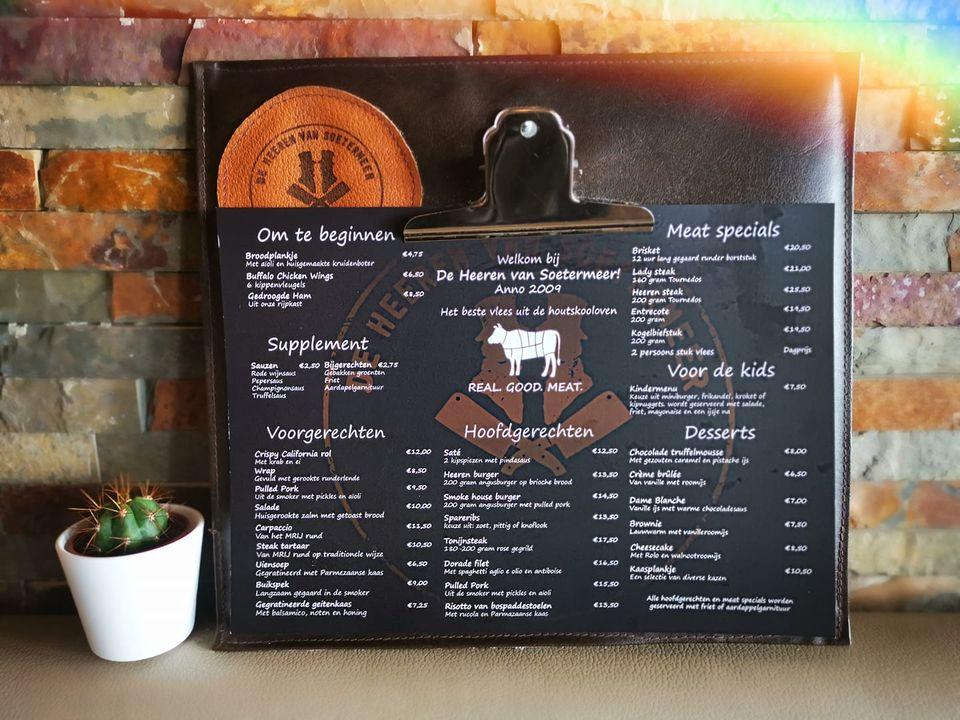 DE HEEREN VAN SOETERMEER
Om te beginnen
Broodplankje €4,75
Met aioli en huisgemaakte kruidenboter
Buffalo Chicken Wings €6,50
6 kippenvleugels
Gedroogde Ham €8,50
Uit onze rijpkast
Supplement
Sauzen €2,50
Rode wijnsaus
Pepersaus
Champignonsaus
Truffelsaus
Bijgerechten €2,75
Gebakken groenten
Friet
Aardapelgarnituur
Voorgerechten
Crispy California rol €12,00
Met krab en ei
Wrap €8,50
Gevuld met gerookte runderlende
Pulled Pork €9,50
Uit de smoker met pickles en aioli
Salade €10,00
Huisgerookte zalm met getoast brood
Carpaccio €11,50
Van het MRIJ rund
Steak tartaar €10,50
Van MRIJ rund op traditionele wijze
Uiensoep €6,50
Gegratineerd met Parmezaanse kaas
Buikspek €9,00
Langzaam gegaard in de smoker
Gegratineerde geitenkaas €7,25
Met balsamico, noten en honing
Welkom bij
De Heeren van Soetermeer!
Anno 2009
Het beste vlees uit de houtskooloven
REAL. GOOD. MEAT.
Hoofdgerechten
Saté €12,50
2 kipspiezen met pindasaus
Heeren burger €13,50
200 gram angusburger op brioche brood
Smoke house burger €14,50
200 gram angusburger met pulled pork
Spareribs €13,50
keuze uit: zoet, pittig of knoflook
Tonijnsteak €17,50
180-200 gram rose gegrild
Dorade filet €16,50
Met spaghetti aglio e olio en antiboise
Pulled Pork €15,50
Uit de smoker met pickles en aioli
Risotto van bospaddestoelen €13,50
Met rucola en Parmazaanse kaas
Meat specials
Brisket €20,50
12 uur lang gegaard runder borststuk
Lady steak €21,00
160 gram Tournedos
Heeren steak €25,50
200 gram Tournedos
Entrecote €19,50
200 gram
Kogelbiefstuk €19,50
200 gram
2 persoons stuk vlees Dagprijs
Voor de kids
Kindermenu €7,50
Keuze uit miniburger, frikandel, kroket of
kipnuggets. wordt geserveerd met salade,
friet, mayonaise en een ijsje na
Desserts
Chocolade truffelmousse €8,00
Met gezouten caramel en pistache ijs
Crème brûlée €6,50
Van vanille met roomijs
Dame Blanche €7,00
Vanille ijs met warme chocoladesaus
Brownie €7,50
Lauwwarm met vanilleroomijs
Cheesecake €8,50
Met Rolo en walnootroomijs
Kaasplankje €10,50
Een selectie van diverse kazen
Alle hoofdgerechten en meat specials worden
geserveerd met friet of aardappelgarnituur